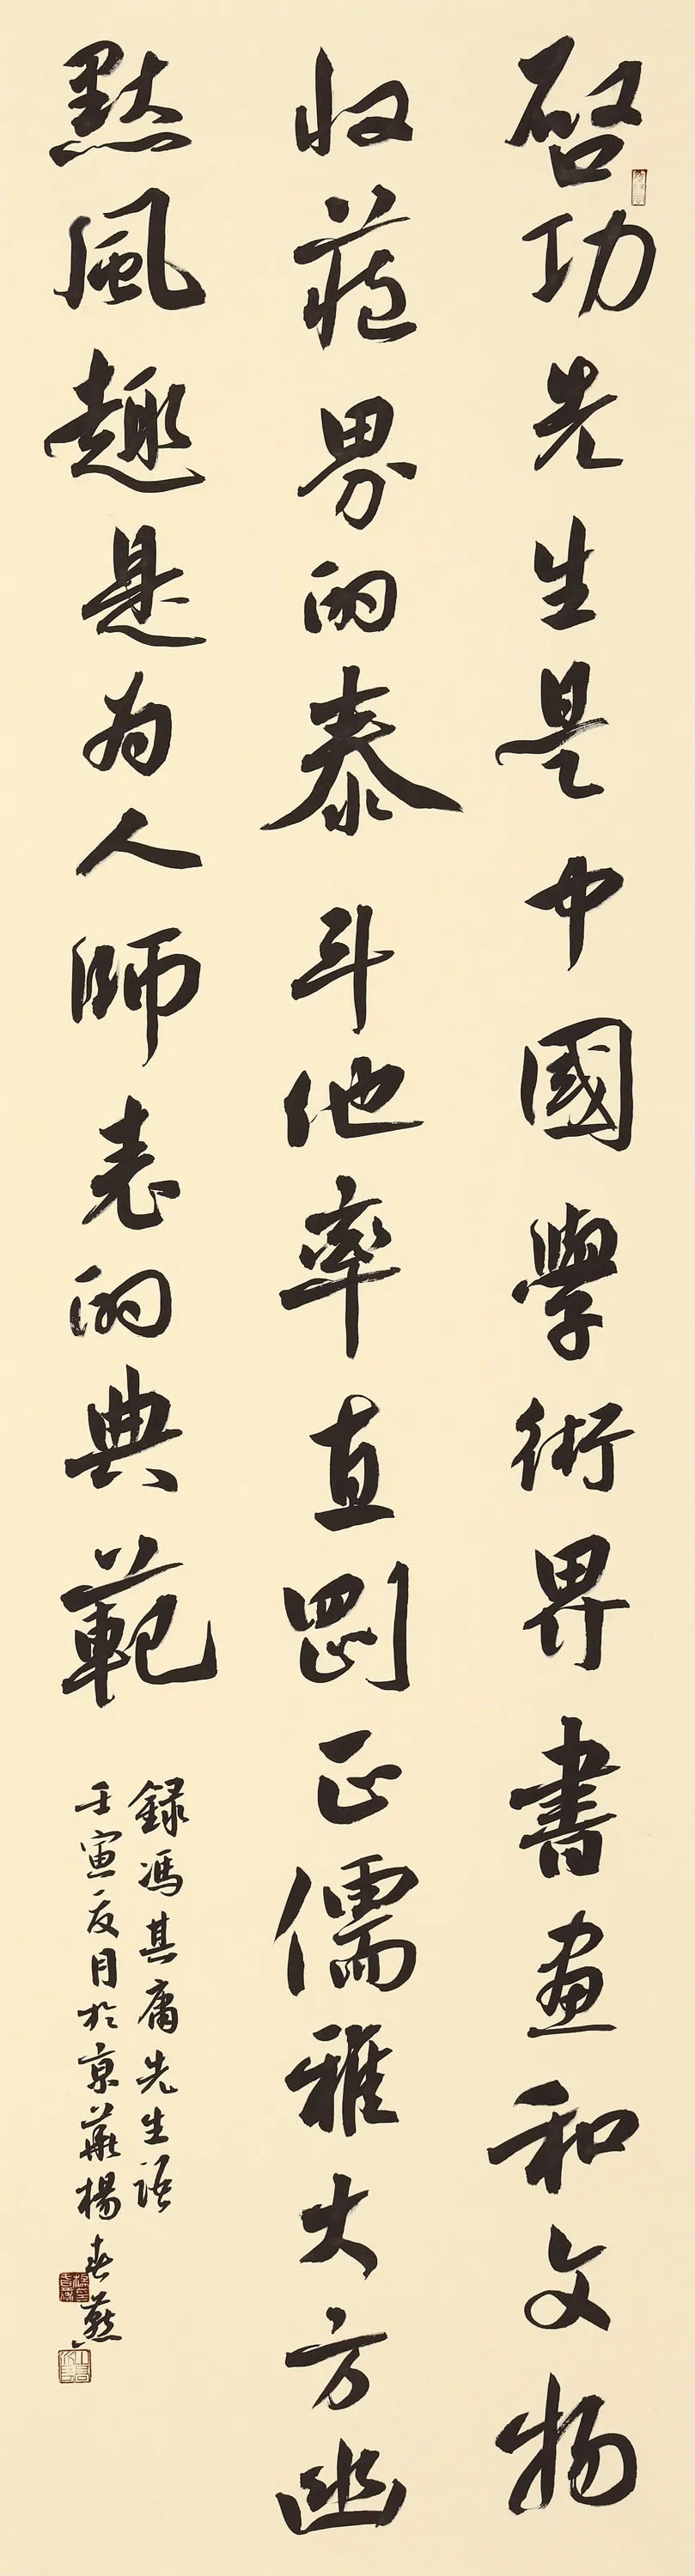 啓功先生是中國學術界書畫和文物
收藏界的泰斗他率直剛正儒雅大方幽
默風趣是为人師表的典範
録馮其庸先生語
壬寅夏月於京華楊春燕